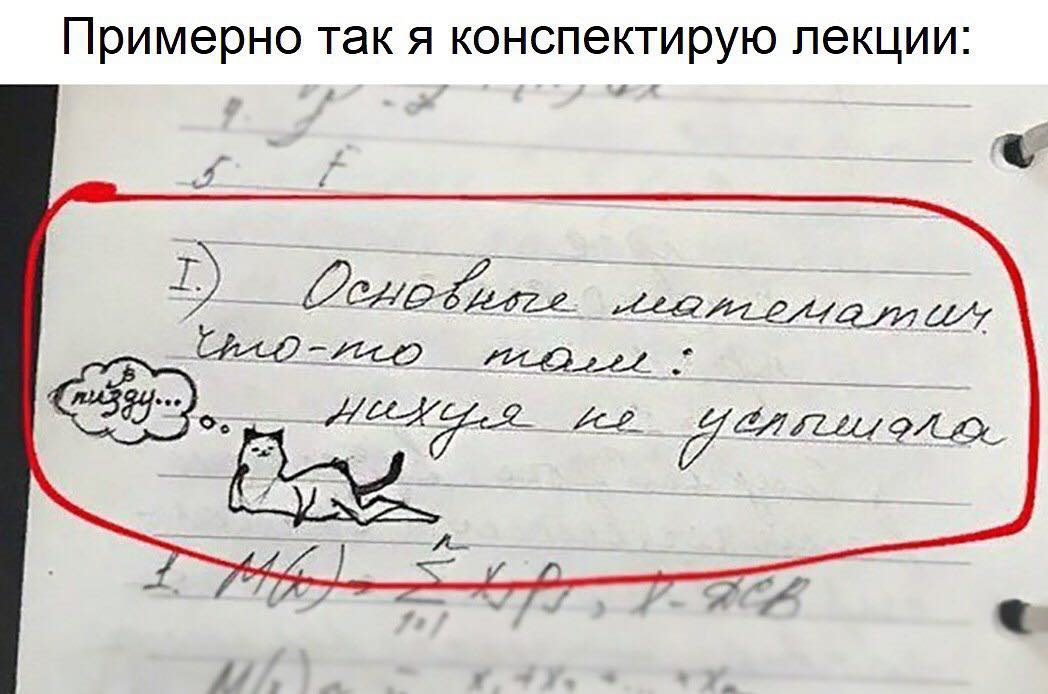 Примерно так я конспектирую лекции:
4.
5. f
I.) Основные математич.
что-то там:
в
пизду...
нихуя не услышала
1. M(x) = n Σ i=1 xi pi, X - ДСВ